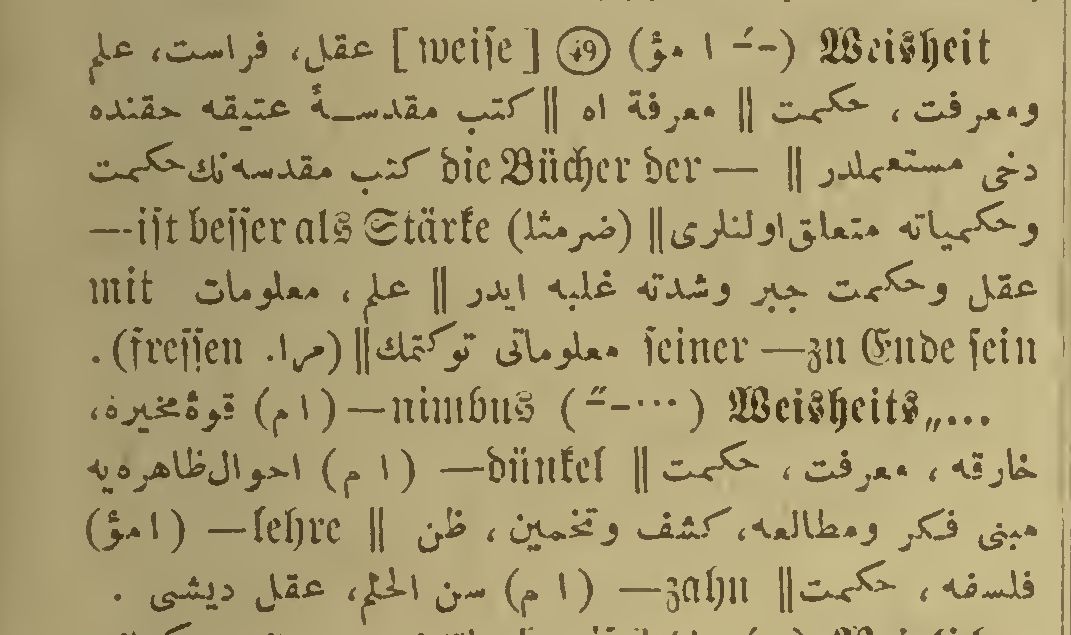 Weisheit (-́- ا مؤ) (49) [weiſe] عقل، فراست، علم
ومعرفت، حكمت || معرفة اه || كتب مقدسۀ عتيقه حقنده
دخى مستعملدر || — die Bücher der كتب مقدسه نك حكمت
وحكمياته متعلق اولنلرى || (ضرمثلا) —ist beſſer als Stärke
عقل وحكمت جبر وشدته غلبه ايدر || علم، معلومات mit
ſeiner —zu Ende ſein معلوماتى توكتمك || (مرا. freſſen) .
Weisheits„... (···-˝) —nimbus (ا م) قوۀ مخيره،
خارقه، معرفت، حكمت || —dünkel (ا م) احوال ظاهره يه
مبنى فكر ومطالعه، كشف وتخمين، ظن || —lehre (ا مؤ)
فلسفه، حكمت || —zahn (ا م) سن الحلم، عقل ديشى .